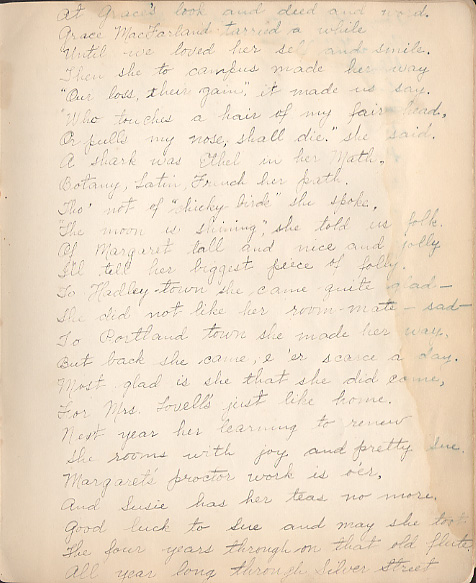 At Grace's look and deed and word.
Grace MacFarland tarried a while
Until we loved her self and smile.
Then she to campus made her way
"Our loss, their gain", it made us say.
"Who touches a hair of my fair head,
Or pulls my nose, shall die." she said.
A shark was Ethel in her Math.
Botany, Latin, French her path.
Tho' not of "chicky birds" she spoke,
"The moon is shining", she told us folk.
Of Margaret tall and nice and jolly
I'll tell her biggest piece of folly.
To Hadley-town she came quite glad—
She did not like her room-mate—sad—
To Portland town she made her way.
But back she came, e'er scarce a day.
Most glad is she that she did come,
For Mrs. Lovell's just like home.
Next year her learning to renew
She rooms with joy and pretty Sue.
Margaret's proctor work is o'er,
And Susie has her teas no more.
Good luck to Sue and may she toot
The four years through on that old flute
All year long through Silver Street